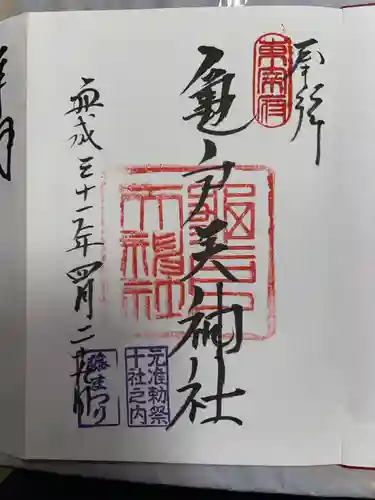 奉拝
東宰府
亀戸天神社
天神社
元准勅祭
十社之内
平成三十一年四月二十
藤まつり